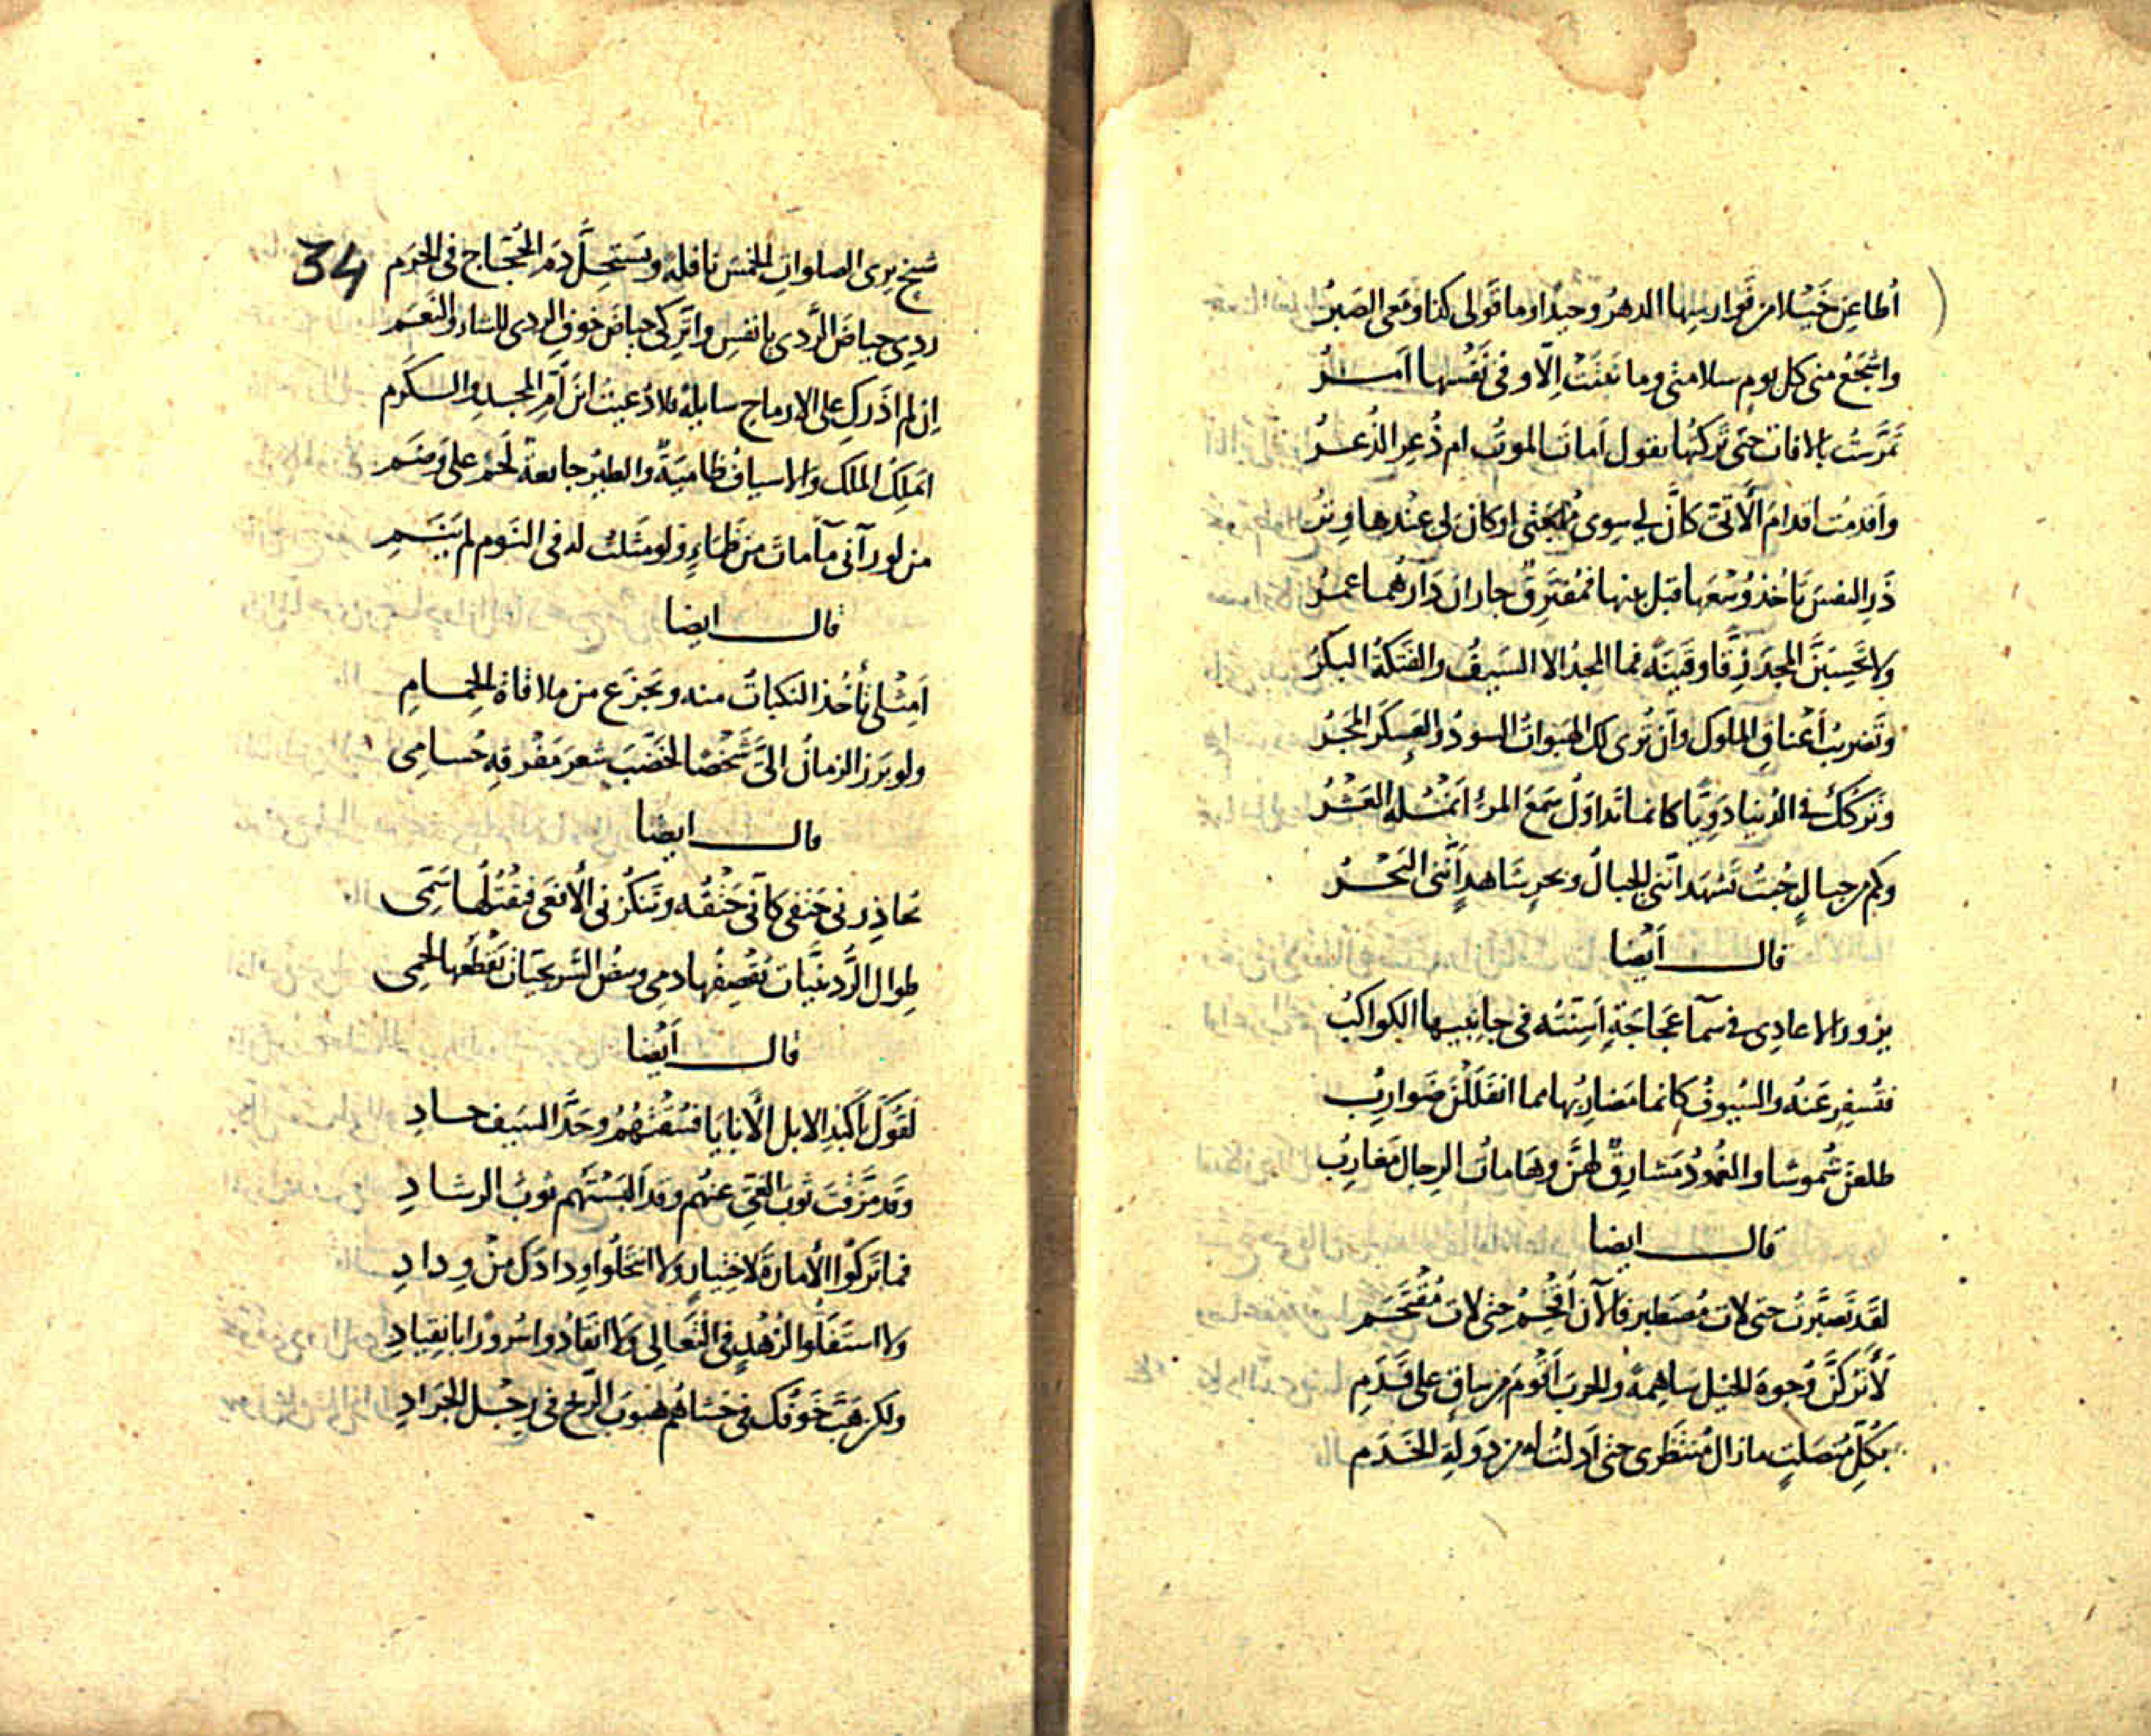 أُطاعِن خَيْلا من فَوارسِها الدهرُ وحيدًا وما قولى كذا ومعى الصَبرُ
واشجَعُ منى كل يومٍ سلامتى وما ثبَتَتْ اِلّا وفى نَفْسها اَمــرُ
تمرَّستُ بالافات حتى تركتُها تقول اَماتَ الموتُ ام ذُعِر الذُعــرُ
واَقدمتُ اقدامَ الأَتىّ كانَّ لى سِوى مُهجَتى او كان لى عِنْدها وِترُ
ذَرِ النفسَ تَأخذ وُسْعَها قبل بينها فمُفتَرِقٌ جاران دَارهُمــا عمــرُ
ولا تَحْسِبَنَّ المجدَ زِقًا وقَينَة فما المجدُ الا السَيفُ والفَتكَةُ البكرُ
وتَضريبُ اَعْناقِ الملوك واَن تُرى لك الهَبَواتُ السودُ والعسكَر المَجْرُ
وتَركُكَ فى الدُنيا دَوِيًّا كانما تَداوَلُ سَمعَ المرءِ اَنمُــلَه العَشْــرُ
وكم من جبالٍ جُبتُ تَشهَد اَنّنى الجبالُ وبحرٍ شاهدٍ اَنّنى البَحْــرُ
قالــــ اَيْضا
يزور الاعادِى فى سمآ عَجاجَةٍ اَسِنّتُه فى جانِبيها الكواكبُ
فتُسفِر عَنْهُ والسُيوفُ كانما مَضاربُها مما انفَلَلْنَ ضَوارِبُ
طلعنَ شُموسًا والغُمودُ مَشارِقٌ لهنَّ وهَاماتُ الرِجال مَغارِبُ
قالــــ ايضا
لقَد تَصبَّرتُ حتى لات مُصْطبر فالآن اُقْحِمُ حتى لات مُقْتَحَــم
لَأَترُكَنَّ وُجوهَ الخيل ساهِمةً والحربَ اَقْوَمَ من ساقٍ على قَدَمِ
بكلِّ مُنصَلتٍ مازال مُنتَظرى حتى اَدلتُ له من دَولةِ الخَدَم
34
شيخ يرى الصلوات الخمسَ نافلة ويَستحِلُّ دَمَ الحُجّاج فى الحرَم
رِدِى حياضَ الرَّدى يا نفسِ واترُكى حياضَ خوفِ الردى للشاء والنَعَــم
اِن لم اَذَركِ على الارماح سايلةً فلا دُعيتُ ابنَ اُمّ المجــدِ والــكَرم
ايملِكُ الملكَ والاسيافُ ظاميةٌ والطيرُ جايعةٌ لَحمٌ على وَضَــم
من لو رآنى مآ ماتَ من ظَمَاءٍ ولو مَثَلتُ له فى النَوم لم يَنَــمِ
قالــــ ايضا
اَمِثْلى تأخُذ النَكباتُ منه ويَجزَع من ملاقاة الحِمــامِ
ولو بَرَز الزمانُ اِلىَّ شَخْصًا لخَضَّبَ شَعرَ مَفْرِقِهِ حُسامِى
قالــــ ايضا
تحاذِرنى حَتفى كاَنّى حَتْفُه وتَنكُزنى الأفعى فيَقتُلُها سَمّى
طوال الرُّدَينيّات تقصِفُها دمى وبيضُ السُّرَيجيّات يَقْطعها لحمى
قالــــ اَيْضا
لَقُوكَ باَكبُدِ الابل الأَبايا فسُقْتَهُمُ وحَدُّ السَيف حــادِ
وقَد مَزَّقتَ ثوبَ الغَىّ عنهم وقد اَلبَسْتَهم ثوبَ الرشــادِ
فما تَركُوا الأَمارَةَ لاختيارٍ ولا انتَحَلُوا وِدادَك مِنْ وِدادِ
ولا استَفَلُوا لزُهْدٍ فى التَعالى ولا انقادُوا سُرورًا بانقِيادِ
ولكن هَبَّ خَوفُك فى حَشاهُم هُبوبَ الرّيح فى رِجْــلِ الجَرَادِ